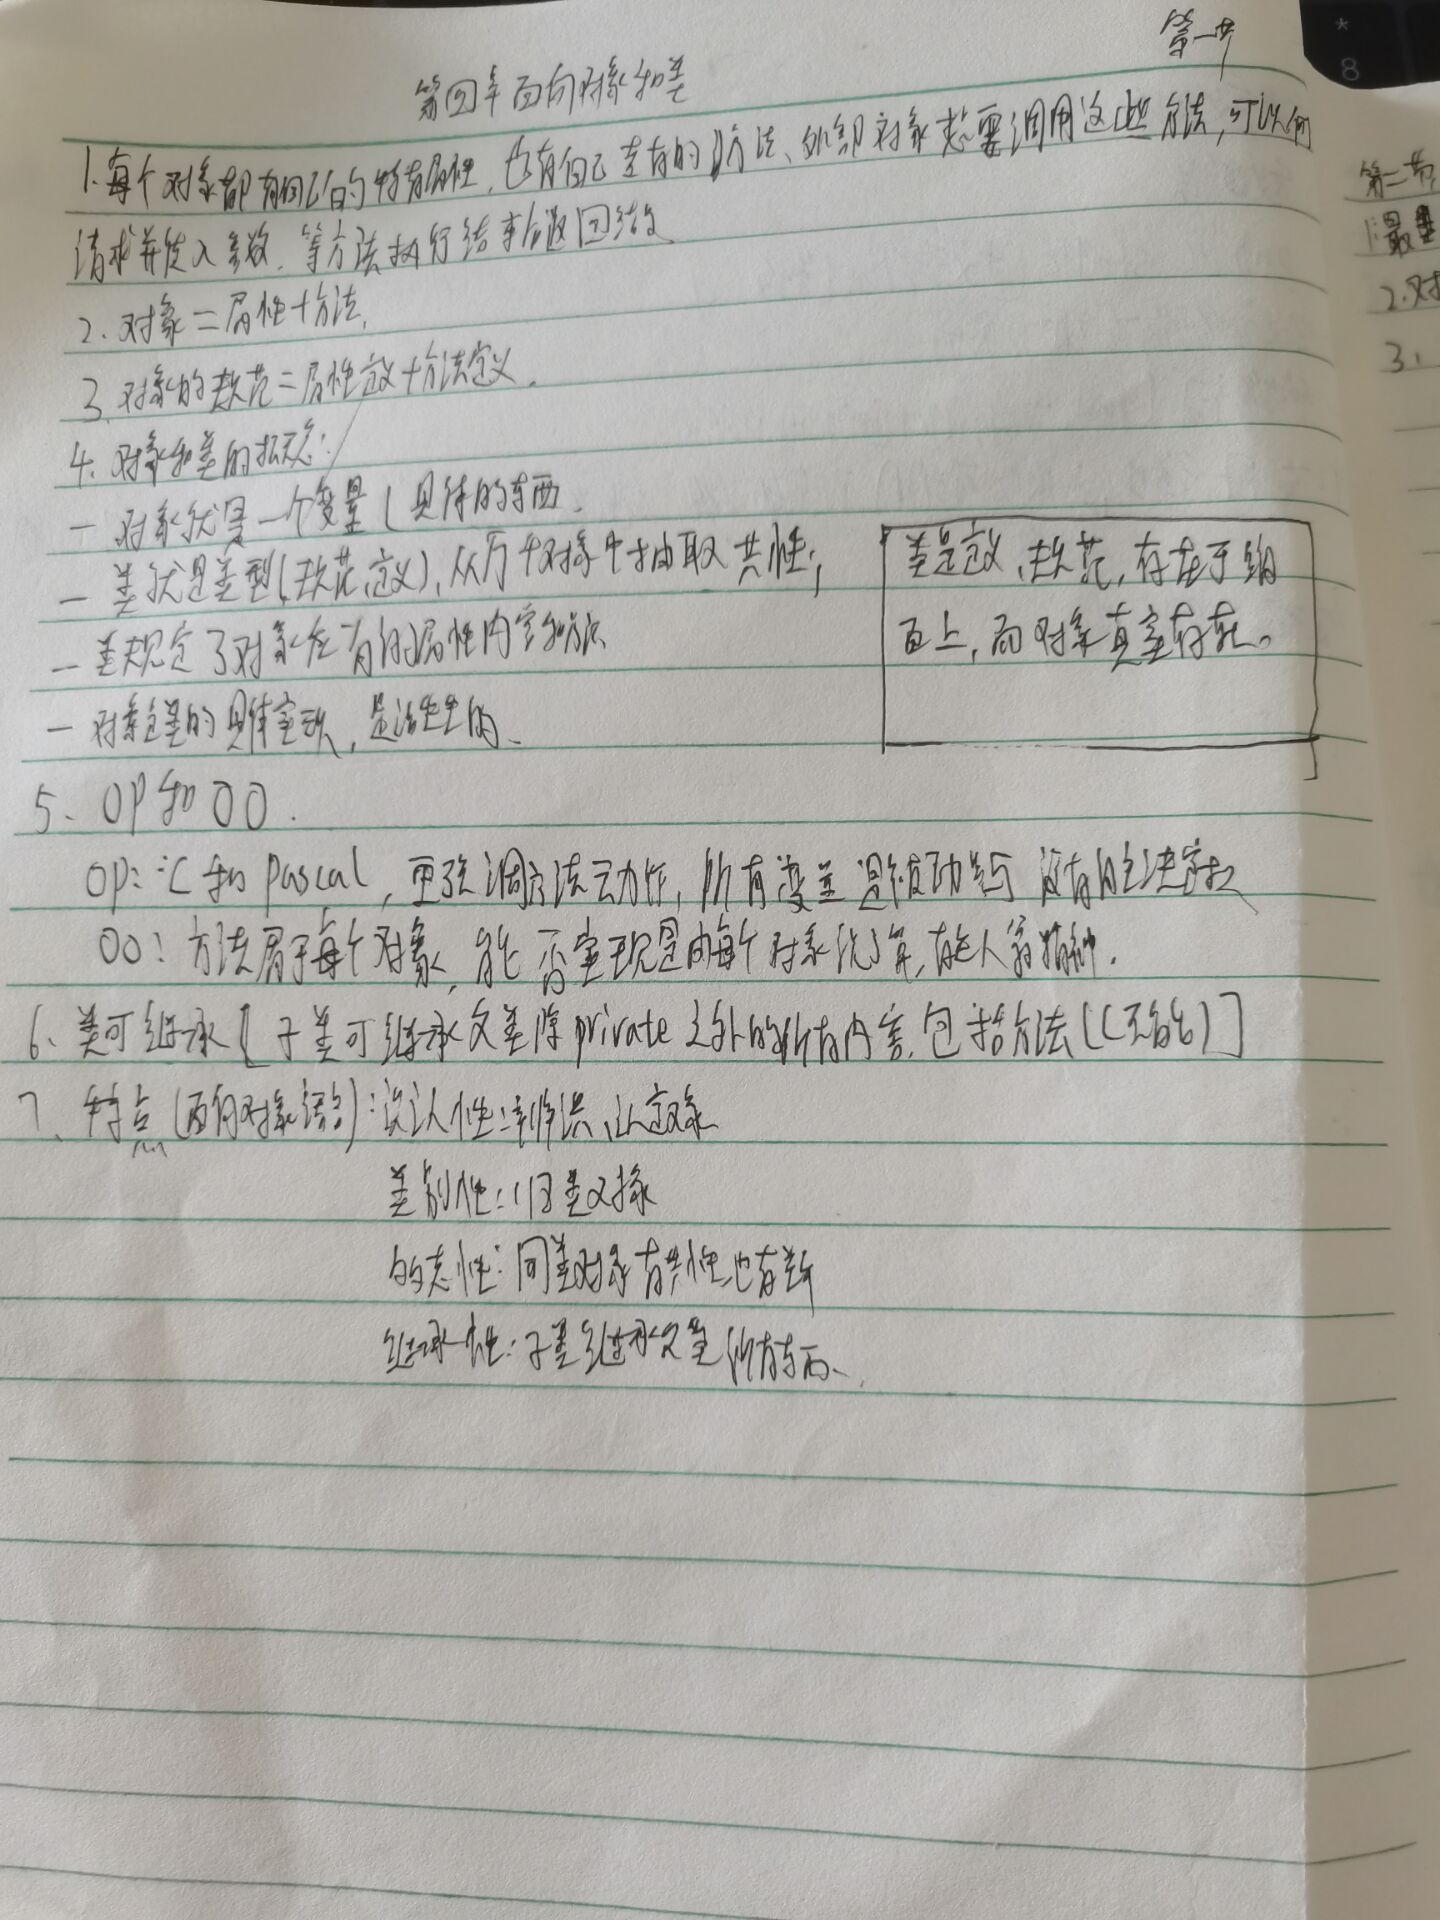 第一节
第四章面向对象和类
1.每个对象都有自己的特有属性,也有自己专有的方法、外部对象想要调用这些方法,可以向
请求并传入参数,等方法执行结束后返回结果
2.对象=属性+方法.
3.对象的规范=属性定义+方法定义.
4.对象和类的概念:
一对象就是一个变量(具体的东西.
一类就是类型(规范,定义),从万千对象中抽取共性;
一类规定了对象应有的属性内容和方法
一对象是类的具体实现,是活生生的、
类是定义、规范,存在于纸
面上,而对象真实存在。
5、OP和OO.
OP:C和Pascal,更强调方法动作,所有变量是被动参与没有自主决定权
OO:方法属于每个对象,能否实现是由每个对象说了算,有主人翁精神.
6、类可继承[子类可继承父类除private之外的所有内容,包括方法(
7、特点(面向对象语言):
类别性:归类对象
同类对象有共性也有差异
继承性:子类继承父类所有东西、
第二节
1:最重
2.对
3、
*
8